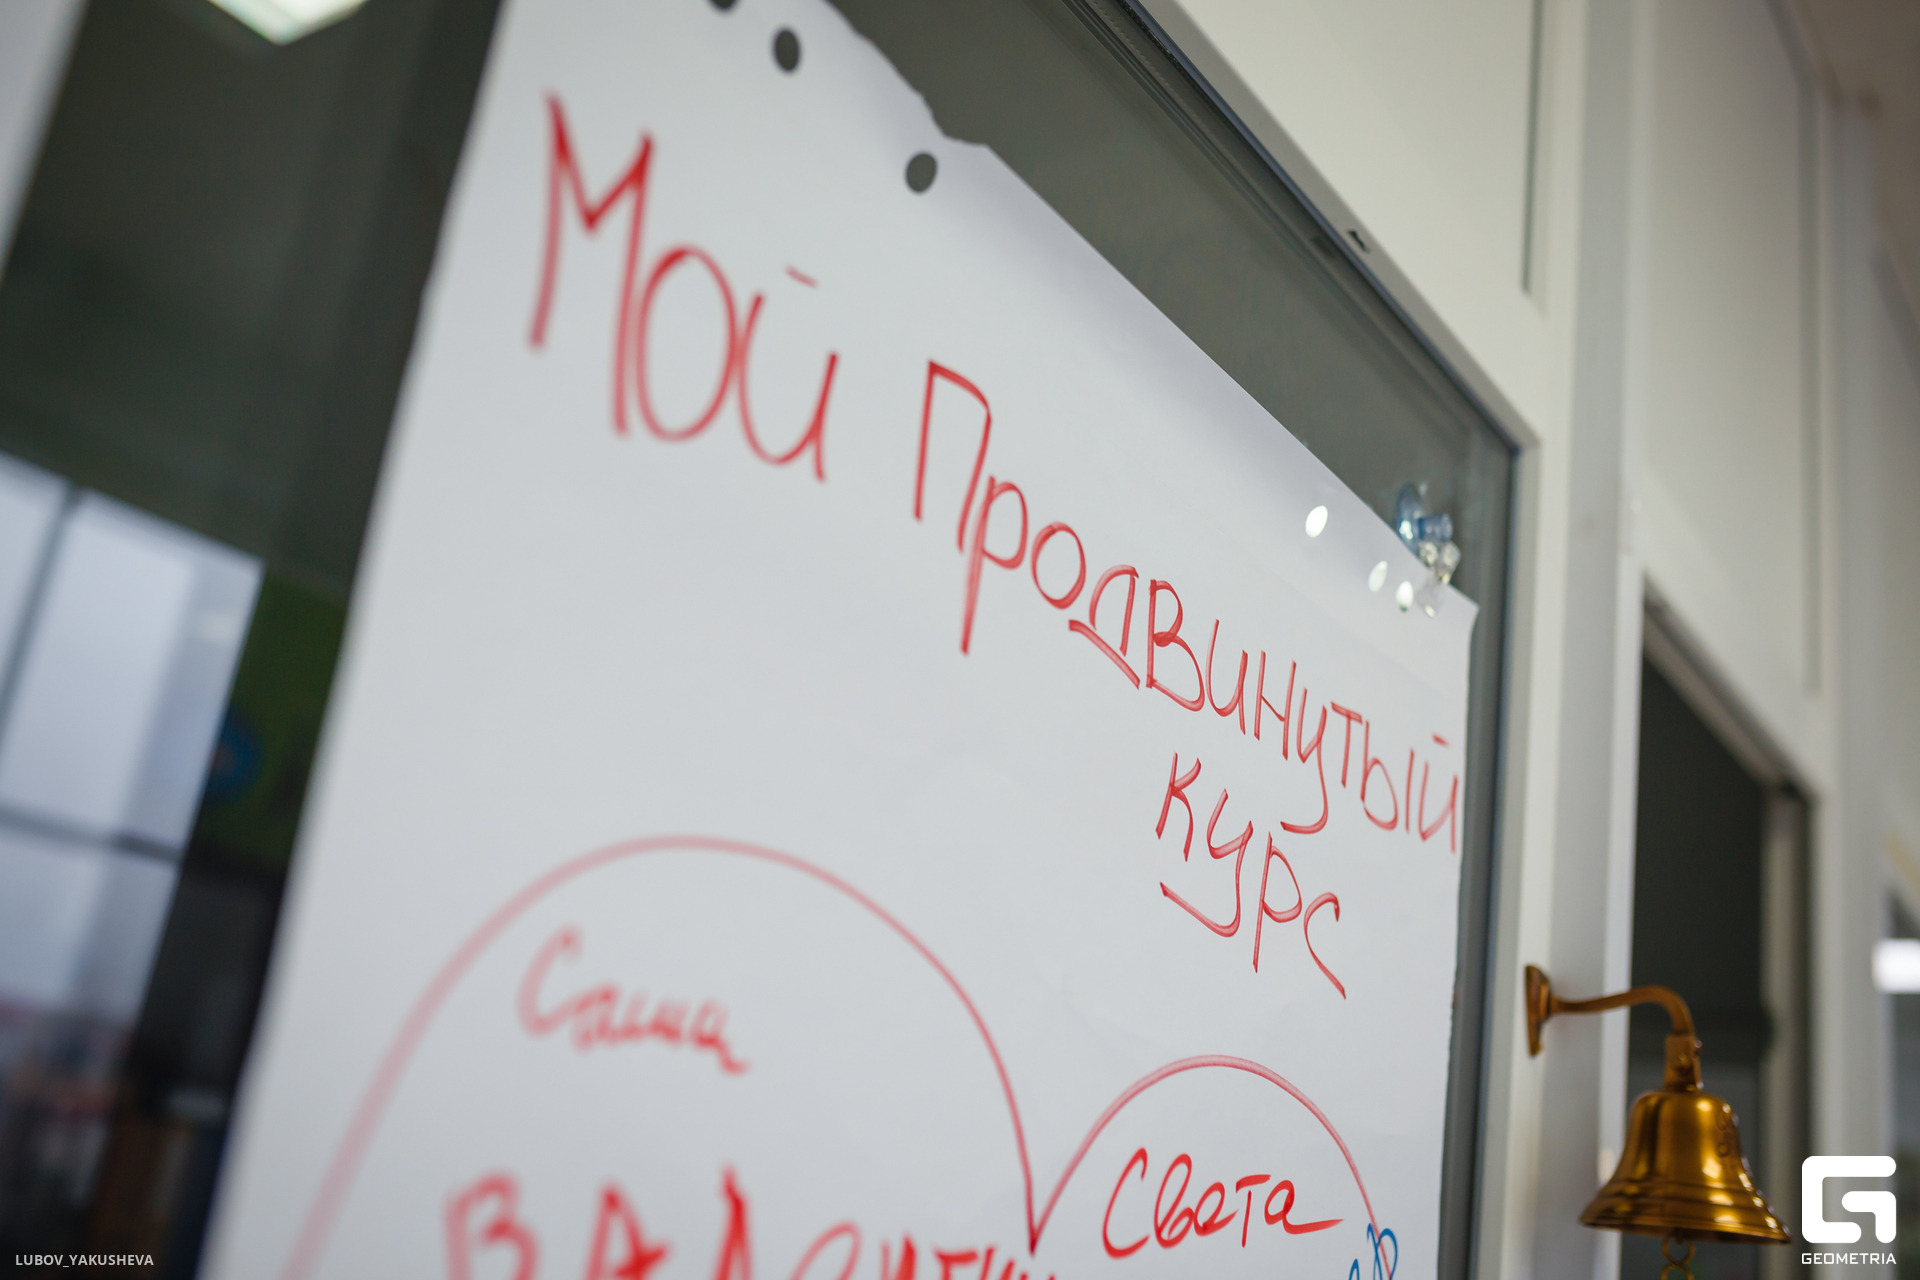 Мой Продвинутый
курс
Саша
Света
LUBOV_YAKUSHEVA
GEOMETRIA